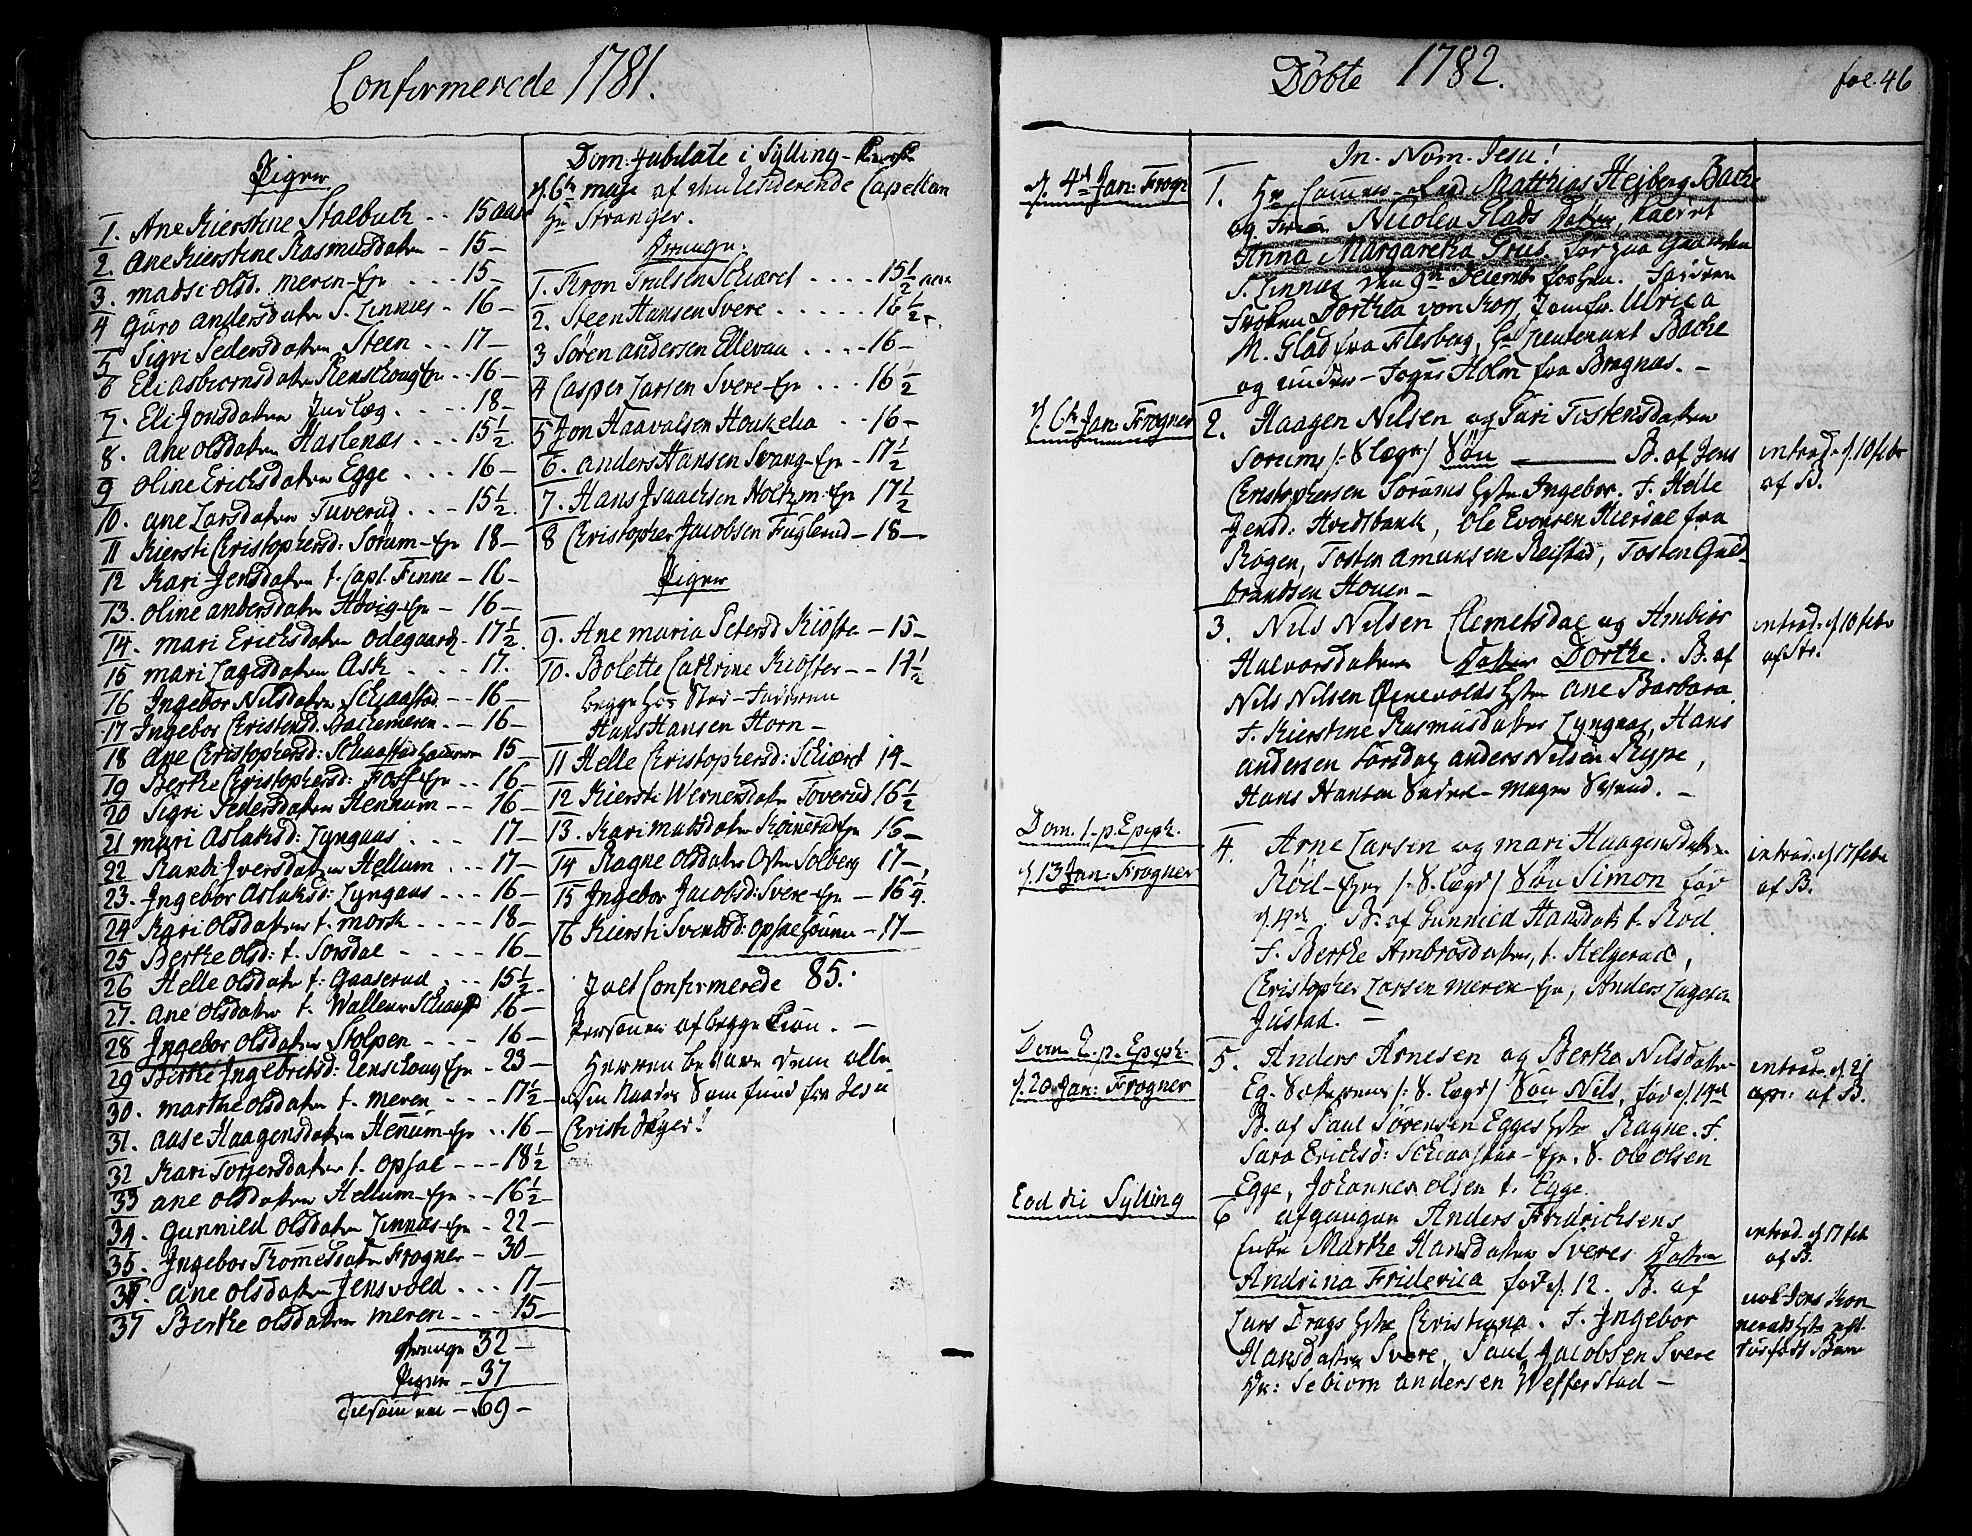 Confirmerede 1781.
Piger
1. Ane Kierstine Stalbach .. 15 aar
2. Ane Kierstine Rasmusdatter - 15 -
3. Madsi Olsd. Meren-Eje - 15 -
4 Guro Andersdatter S. Linnæs - 16 -
5 Sigri Pedersdatter Steen .. 17 -
6 Eli Asbiornsdatter Renskoug Eje .. 16 -
7. Eli Jonsdatter .... 18 -
8. Ane Olsdatter Haslenæs ... 15 1/2.
9 Oline Ericksdatter Egge ... 16 -
10. Ane Larsdatter Tuverud ... 15 1/2.
11 Kiersti Christophersd: Sørum-Eje 18 -
12 Kari Jensdatter t. Capt. Finne - 16 -
13. Oline Andersdatter Høvig-Eje - 16 -
14. Mari Ericksdatter Odegaard - 17 1/2.
15 Mari Lagesdatter Ask ... 17.
16 Ingebor Nilsdatter Schiaastad .. 16 -
17 Ingebor Christensd. Stockemeren .. 16 -
18 Ane Christophersd: Schiaastad 15 -
19 Berthe Christophersd: Foss Eje .. 16 -
20 Sigri Pedersdatter Hennum -- 16 -
21 Mari Aslaksd: Lyngaas .... 17 -
22 Randi Iversdatter Hellum ... 17 -
23. Ingebor Aslaksd: Lyngaas ... 16 -
24 Kari Olsdatter t. Mørk .... 18 -
25 Berthe Olsd: t. Sørsdal .... 16
26 Helle Olsdatter t: Gaaserud ... 15 1/2
27. Ane Olsdatter t. Wallen 16 -
28 Ingebor Olsdatter Stolpen ... 16 -
29 Berthe Ingebretsd: Renskoug Eje .. 23 -
30. Marthe Olsdatter t. Meren ... 17 1/2
31. Aase Haagensdatter Hennum-Eje .. 16 -
32 Kari Torgersdatter t. Opsal --- 18 1/2
33 Ane Olsdatter Hellum-Eje .. 16 1/2
34. Gunnild Olsdatter Linnæs-Eje - 22 -
35. Ingebor Thommesdatter Frogner - 30 -
36. Ane Olsdatter Jensvold ... 17 -
37 Berthe Olsdatter Meren --- 15 -
Drenge 32 -
Piger - 37
Tilsammen - 69 -
Dom. Jubilate i Sylling-Kirke
d. 6te Maje af den residerende Capellan
Hr Stranger.
Drenge.
1. Tron Trulsen Schiæret .... 15 1/2 aar
2. Steen Hansen Svere ..... 16 1/2
3 Søren Andersen Ellevaa .... 16 -
4 Casper Larsen Svere-Eje ... 16 1/2
5 Jon Haavalsen Houkelia .. 16 -
6. Anders Hansen Svang-Eje - 17 1/2
7. Hans Isaachsen Holtzm-Eje 17 1/2
8 Christopher Jacobsen Fuglerud - 18 -
Piger
9. Ane Maria Petersd Kiøster - 15 -
10. Bolette Cathrine Kiøster -- 14 1/2
begge hos
Hans Hansen Horn -
11 Helle Christophersd: Schiæret 14 -
12 Kiersti Wernersdatter Toverud 16 1/2
13. Kari Madsdatter 16 -
14 Ragne Olsdatter Øster Solberg 17 -
15 Ingebor Jacobsd: Svere-Eje - 16 1/4.
16 Kiersti Svendsd: Opsal - 17 -
I alt Confirmerede 85:
Personer af begge Kiøn. -
Herren bevare dem alle
i den Naades Samfund fra Jesu
Christi Dager!
Döbte 1782.
fol. 46
In. Nom. Jesu!
d. 4de Jan: Frogn
1. Hr Matthias Hejberg Bache
og Frue Nicolea Glads Datter, kaldet
Anna Margaretha Grüs. før paa
S. Linnæs den 9de Decemb.
Frøken Dorthea von Kors, Jomfr. Ulrica
M. Glad fra Flesberg, Hr Lieutenant Bache
og under-Foget Holm fra Bragnæs. -
d. 6te Jan: Frogner
2. Haagen Nilsen og Siri Tostensdatter
Sørums /: 8. lægr/ Søn B. af Jens
Christophersen Sørums Hstr Ingebor. F. Helle
Jensd: Hvidtbank, Ole Evensen Kiersdal fra
Røgen, Tosten Amunsen Reistad, Tosten Gud-
brandsen Houen -
introd. d. 10 febr
af B.
3. Nils Nilsen Clemetsdal og Ambiør
Halvorsdatter Datter Dorthe. B. af
Nils Nilsen Ørnevolds Hstr Ane Barbara
F. Kierstine Rasmusdatter Lyngaas, Hans
Andersen Sørsdag Anders Nilsen Rype,
Hans Hansen -
introd. d 10 febr
af Str.
Dom. 1. p. Epiph.
d. 13 Jan: Frogner
4. Arne Larsen og Mari Haagensdatter
Rød-Ejer /: 8. lægr/ Søn Simon før
d. 4de. B. af Gunnild Hansdatt t. Rød.
F. Berthe Ambrosdatter, t. Helgerud,
Christopher Larsen Meren-Eje, Anders Lagesen
Justad. -
introd: d 17 febr
af B.
Dom. 2. p. Epiph.
d. 20 Jan: Frogner
5. Anders Arnesen og Berthe Nilsdatter
Eg- /: 8. lægr/ Søn Nils, før d. 19de
B. af Paul Sørensen Egges Hstr Ragne. F.
Sara Ericksd: Schiaastad-Eje. S. Ole Olsen
Egge, Johannes Olsen t. Egge.
introd. d. 21
apr: af B.
Eod die Sylling
6 afgangan Anders Fredrichsens
Enke Marthe Hansdatter Sveres Datter
Andrina Friderica før d. 12. B. af
Lars Drags Hstr Christiana. F. Ingebor
Hansdatter Svere, Paul Jacobsen Svere
Andersen Wefferstad -
introd. d 17 feb
af B.